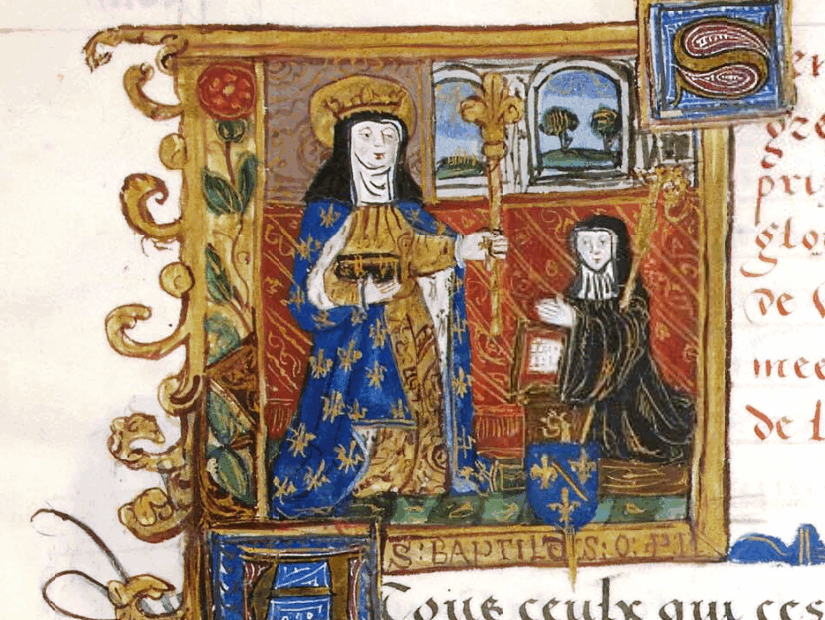 S
gre
pri
glo
de
mee
de l
S: BAPTILDIS: O:
A Tous ceulx qui ces